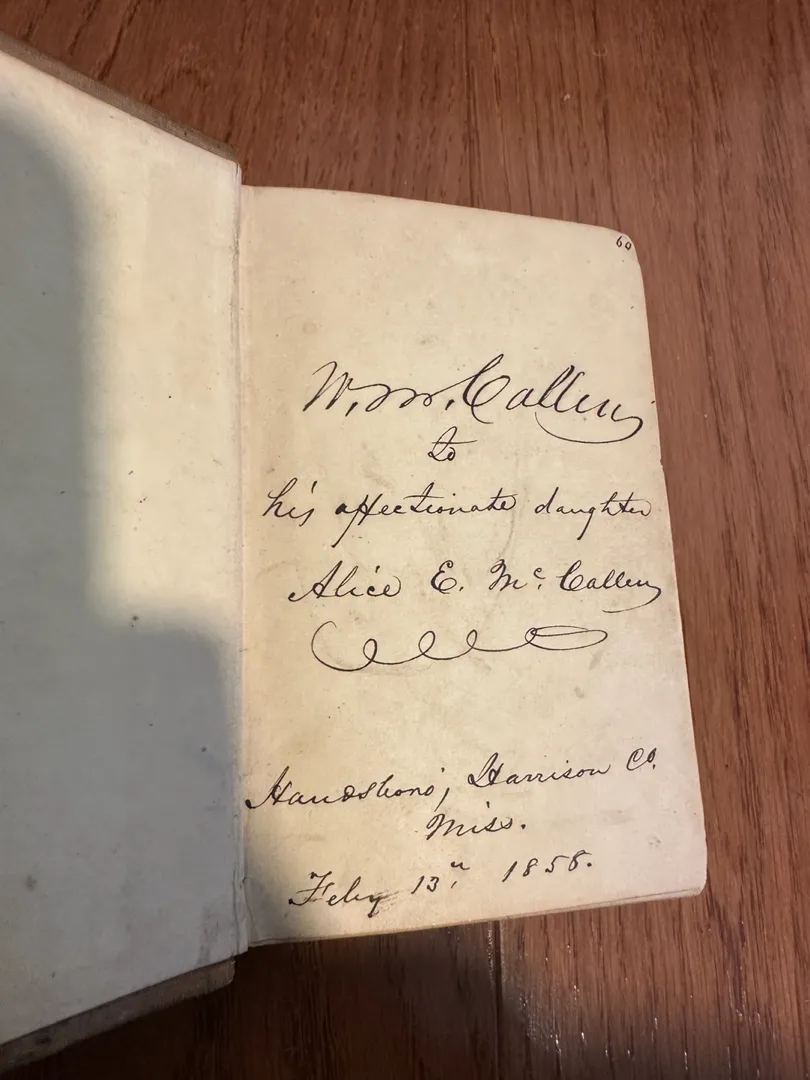 60
W. M. Callen
to
his affectionate daughter
Alice E. Mc. Callen
Handsboro', Harrison Co.
Miss.
Feby 13th 1858.